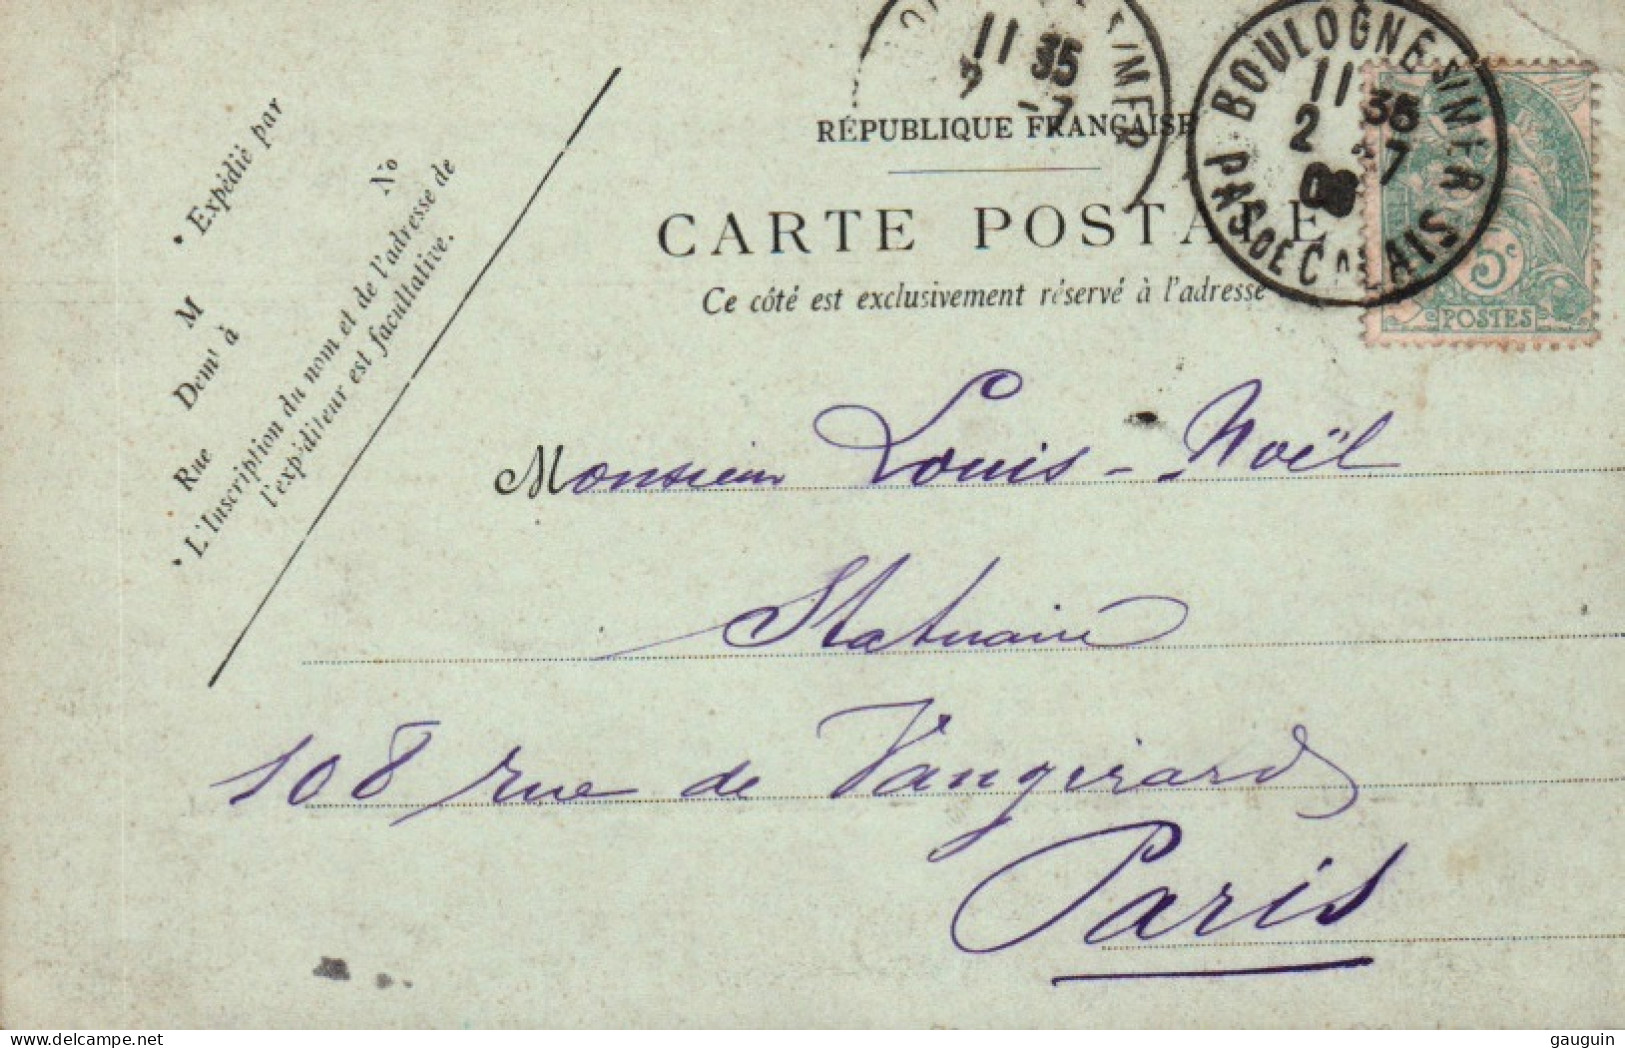 RÉPUBLIQUE FRANÇAISE
CARTE POSTALE
Ce côté est exclusivement réservé à l'adresse
N°
• Expédié par
M
Dem^t à
Rue
• L'Inscription du nom et de l'adresse de
l'expéditeur est facultative.
11 35
7
BOULOGNE S/MER
11 35
2 7
PAS DE CALAIS
5c
POSTES
Monsieur Louis-Noël
Statuaire
108 rue de Vaugirard
Paris
delcampe.net
gauguin